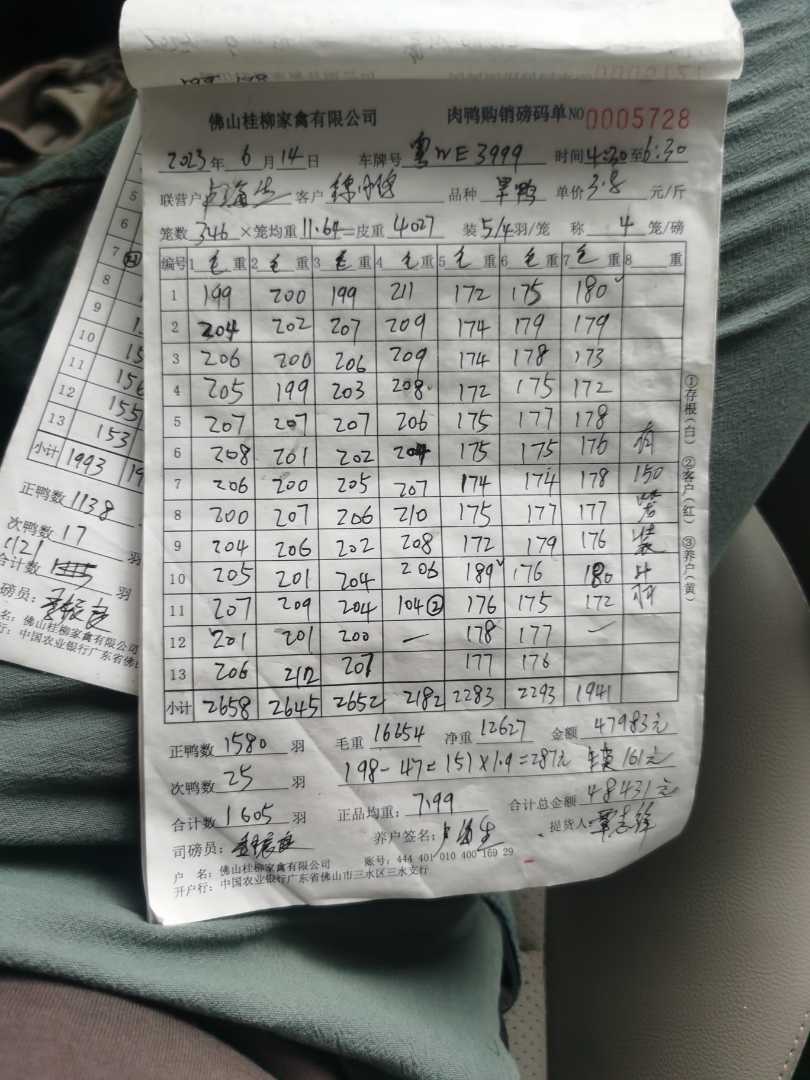 佛山桂柳家禽有限公司 肉鸭购销磅码单 NO 0005728
2023年 6月14日 车牌号 粤WE3999 时间4:30至6:30
联营户 客户 品种 单价3.8元/斤
笼数346×笼均重11.64=皮重4027 装5/4羽/笼 称4笼/磅
编号 1毛重 2毛重 3毛重 4毛重 5毛重 6毛重 7毛重 8 重
1 199 200 199 211 172 175 180
2 204 202 207 209 174 179 179
3 206 200 206 209 174 178 173
4 205 199 203 208 172 175 172
5 207 207 207 206 175 177 178
6 208 201 202 204 175 175 176 有
7 206 200 205 207 174 174 178 150
8 200 207 206 210 175 177 177 笼
9 204 206 202 208 172 179 176 装
10 205 201 204 206 189 176 180 4
11 207 209 204 104② 176 175 172 羽
12 201 201 200 — 178 177 —
13 206 212 207 177 176
小计 2658 2645 2652 2182 2283 2293 1941
正鸭数1580羽 毛重16654 净重12627 金额47983元
次鸭数25羽 198-47=151×1.9=287元 161元
合计数1605羽 正品均重:7.99 合计总金额48431元
司磅员: 养户签名: 提货人:覃志锋
户 名:佛山桂柳家禽有限公司 账号:444 401 010 400 169 29
开户行:中国农业银行广东省佛山市三水区三水支行
①存根(白) ②客户(红) ③养户(黄)
5
6
7
8
9
10
11 156
12 155
13 153
小计 1993
正鸭数1138
次鸭数17羽
1121
合计数 羽
磅员:
名:佛山桂柳家禽有限公司
行:中国农业银行广东省佛